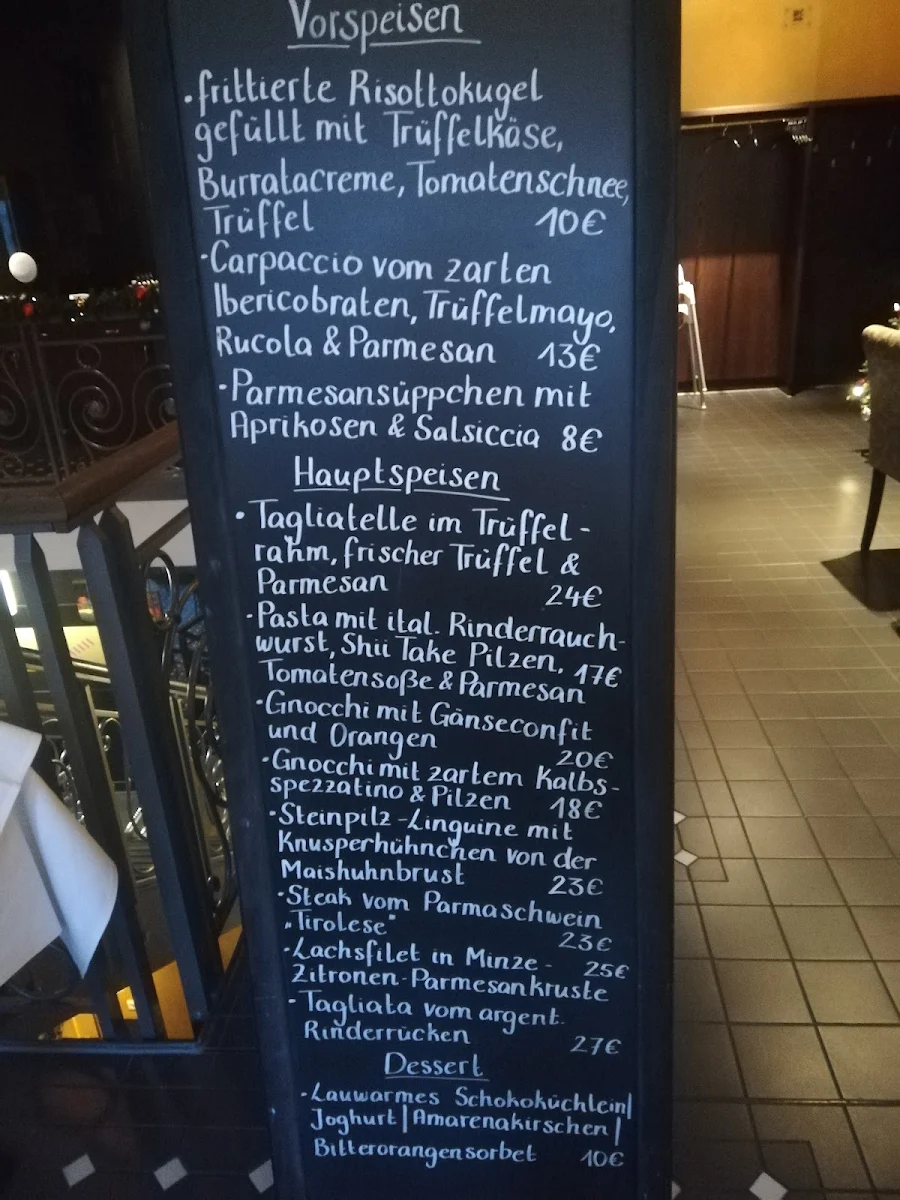 Vorspeisen
·frittierte Risottokugel
gefüllt mit Trüffelkäse,
Burratacreme, Tomatenschnee,
Trüffel 10€
·Carpaccio vom zarten
Ibericobraten, Trüffelmayo,
Rucola & Parmesan 13€
·Parmesansüppchen mit
Aprikosen & Salsiccia 8€
Hauptspeisen
·Tagliatelle im Trüffel-
rahm, frischer Trüffel &
Parmesan 24€
·Pasta mit ital. Rinderrauch-
wurst, Shii Take Pilzen, 17€
Tomatensoße & Parmesan
·Gnocchi mit Gänseconfit
und Orangen 20€
·Gnocchi mit zartem Kalbs-
spezzatino & Pilzen 18€
·Steinpilz-Linguine mit
Knusperhühnchen von der
Maishuhnbrust 23€
·Steak vom Parmaschwein
„Tirolese" 23€
·Lachsfilet in Minze- 25€
Zitronen-Parmesankruste
·Tagliata vom argent.
Rinderrücken 27€
Dessert
·Lauwarmes Schokoküchlein|
Joghurt|Amarenakirschen|
Bitterorangensorbet 10€